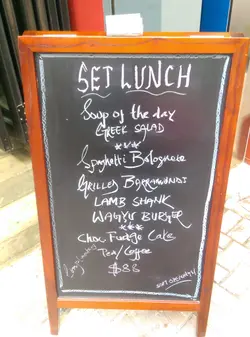 SET LUNCH
Soup of the day
GREEK SALAD
***
Spaghetti Bolognaise
GRILLED BARRAMUNDI
LAMB SHANK
WAGYU BURGER
***
Choc Fudge Cake
Tea/Coffee
$88